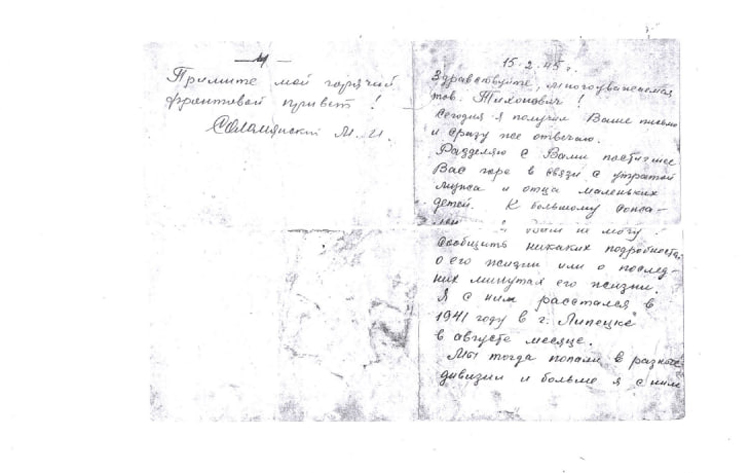 — 4 —
Примите мой горячий
фронтовой привет!
Соламянский М. И.
15.2.45 г.
Здравствуйте, многоуважаемая
тов. Тихонович!
Сегодня я получил Ваше письмо
и сразу же отвечаю.
Разделяю с Вами постигшее
Вас горе в связи с утратой
мужа и отца маленьких
детей. К большому сожа-
не могу
сообщить никаких подробностей
о его жизни или о послед-
них минутах его жизни.
Я с ним расстался в
1941 году в г. Липецке
в августе месяце.
Мы тогда попали в разные
дивизии и больше я с ним